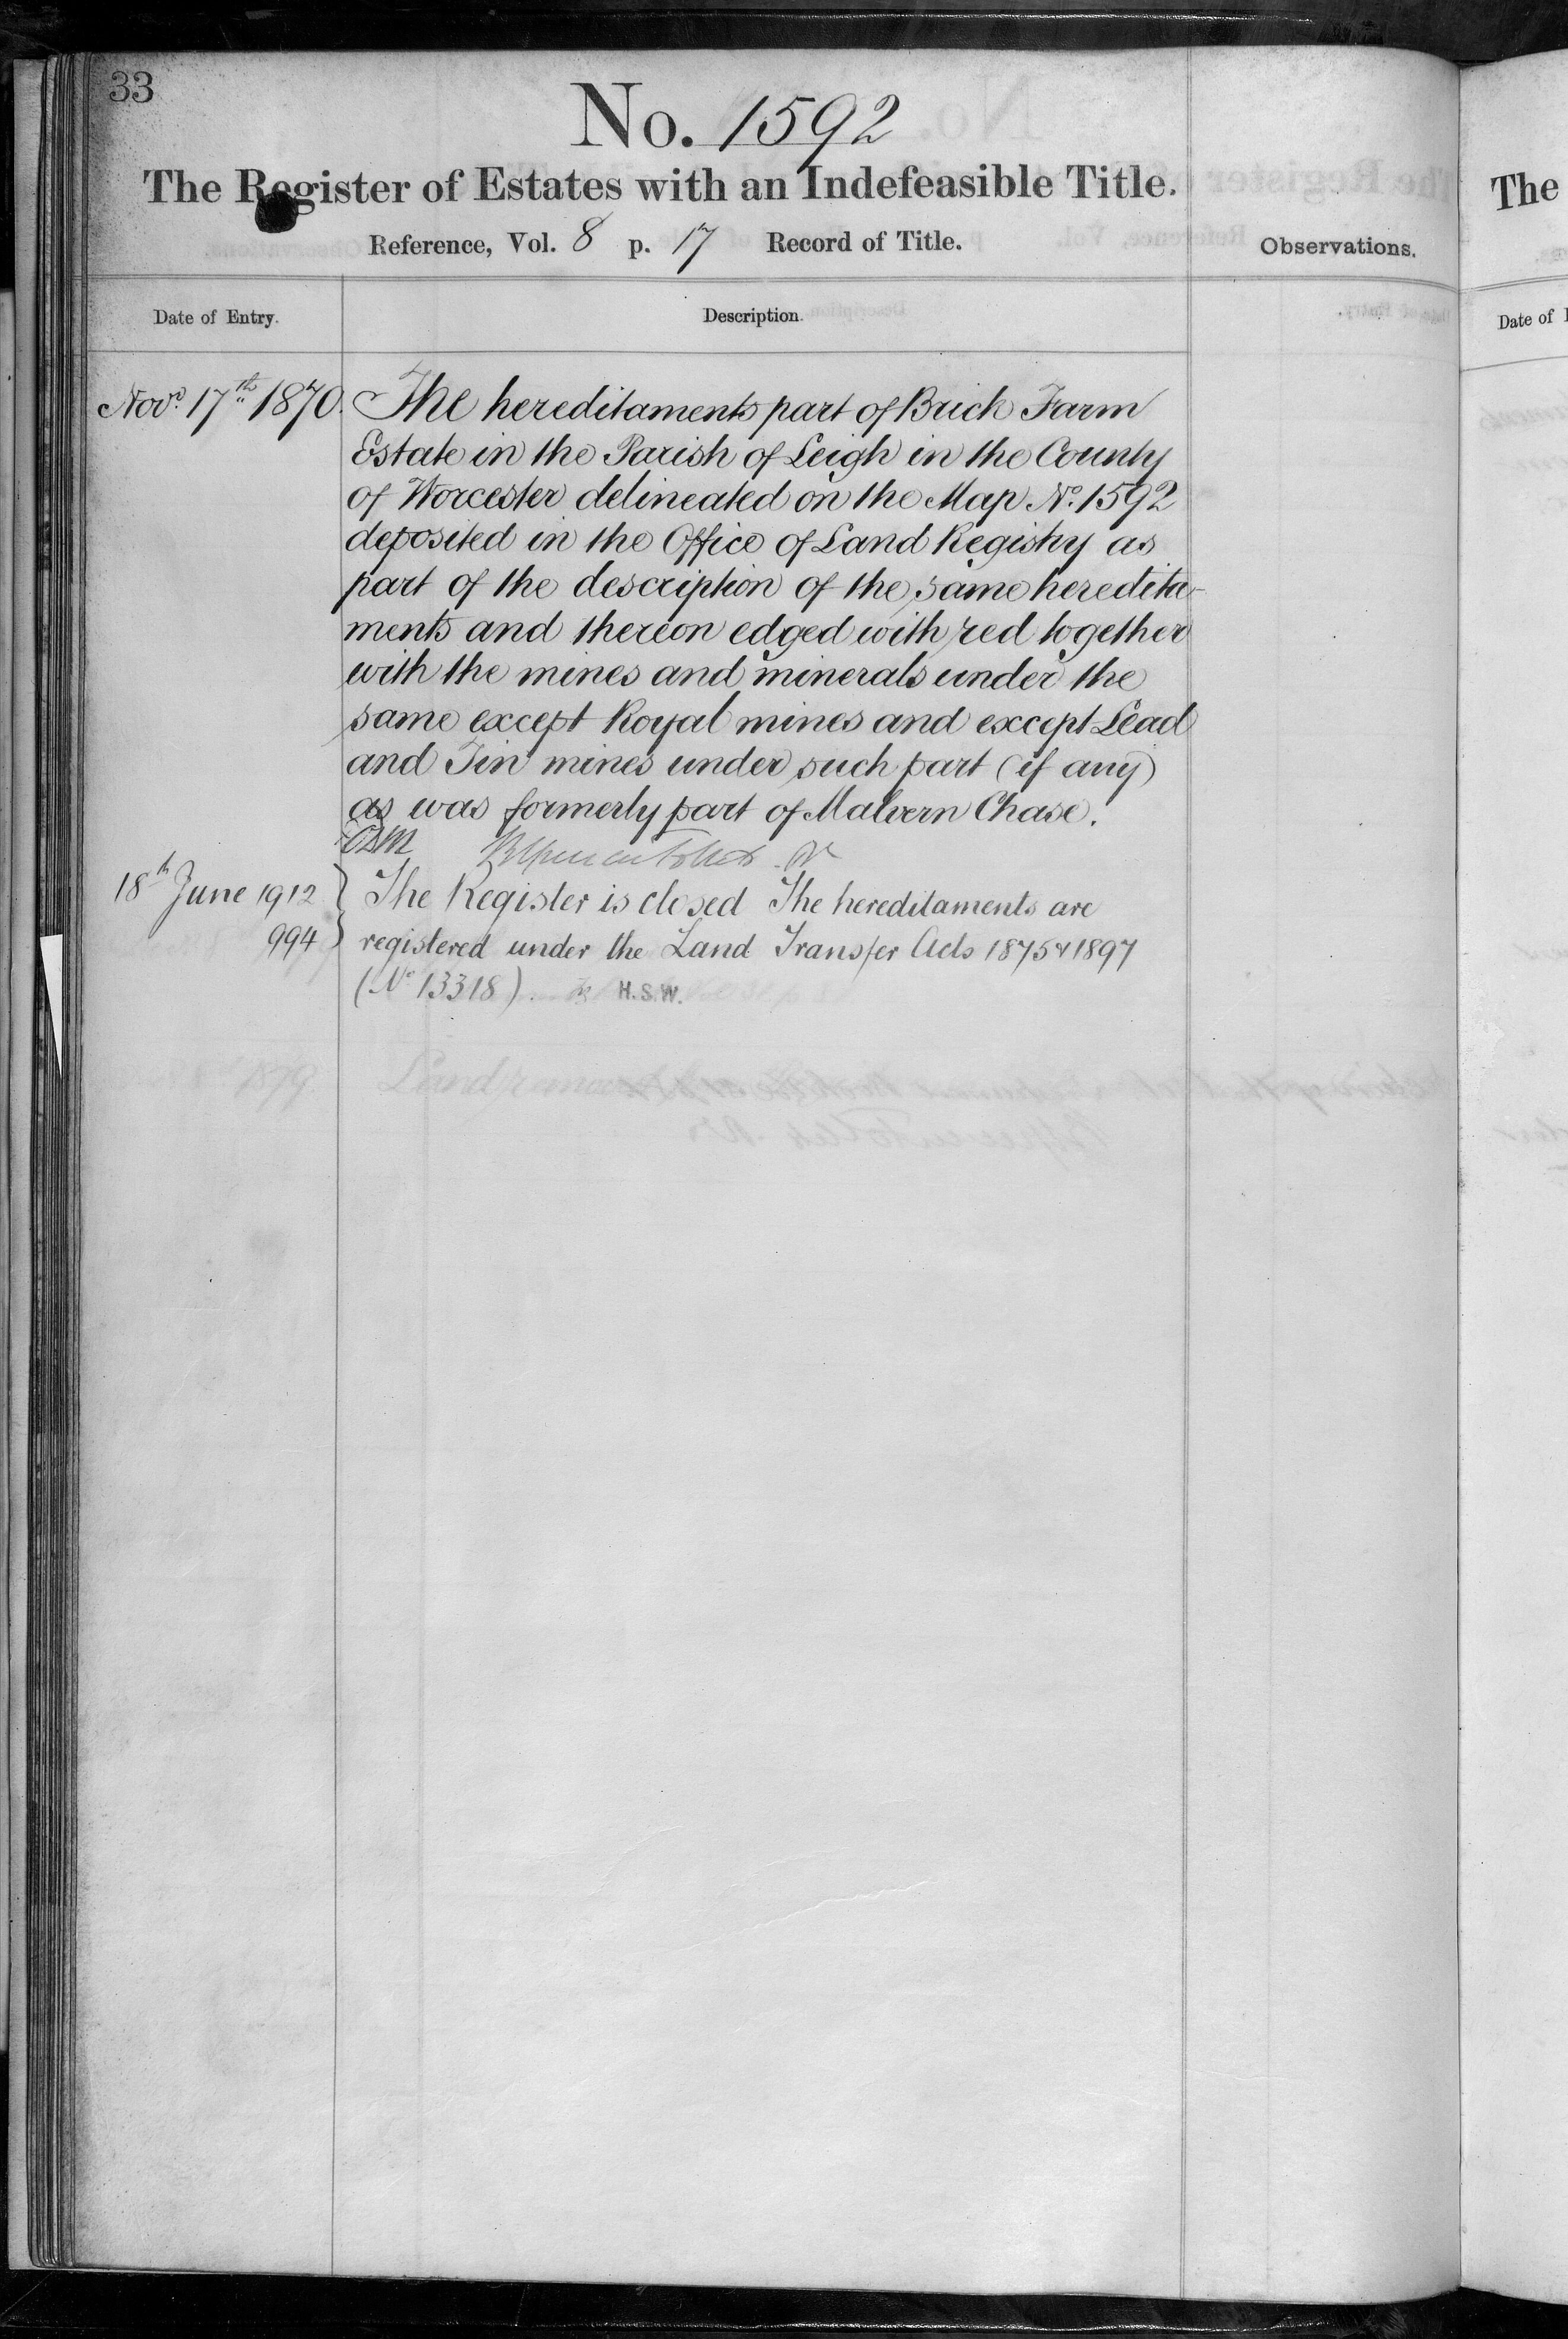 33
No. 1592
The Register of Estates with an Indefeasible Title.
Reference, Vol. 8 p. 17 Record of Title.
Observations.
Date of Entry.
Description.
Novr. 17th 1870. The hereditaments part of Brick Farm
Estate in the Parish of Leigh in the County
of Worcester delineated on the Map No. 1592
deposited in the Office of Land Registry as
part of the description of the same heredita-
ments and thereon edged with red together
with the mines and minerals under the
same except Royal mines and except Lead
and Tin mines under such part (if any)
as was formerly part of Malvern Chase.
18th June 1912 } The Register is closed The hereditaments are
994 } registered under the Land Transfer Acts 1875 & 1897
(No 13318). H.S.W.
The
Date of